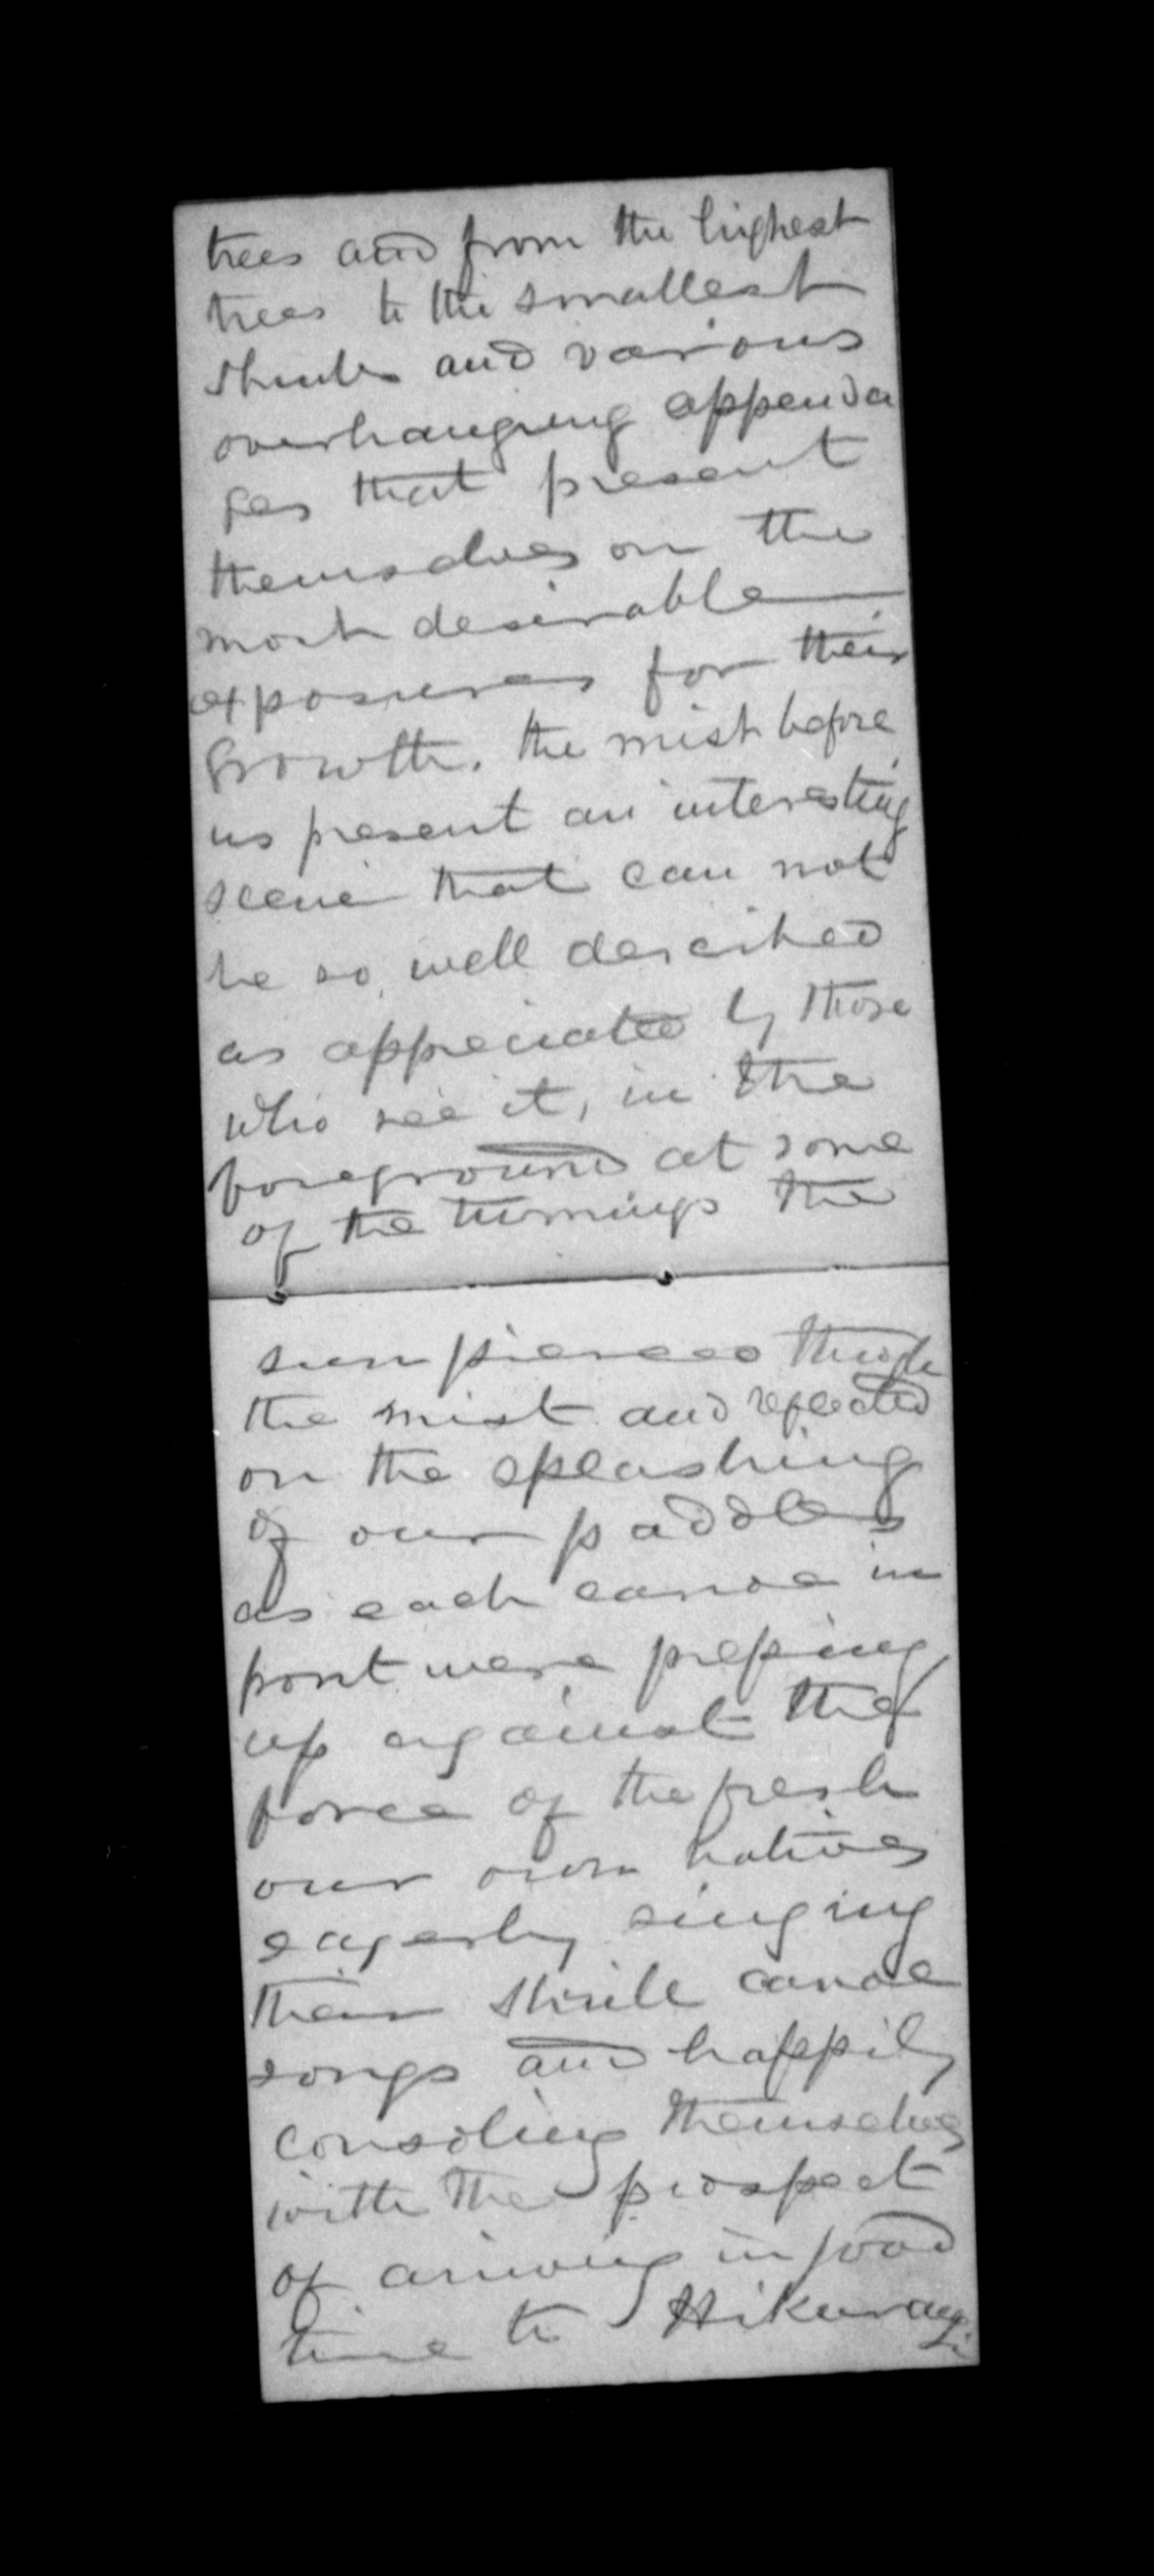 trees and from the highest
trees to the smallest
shrubs and various
overhanging appenda
ges that present
themselves on the
most desirable
exposures for their
growth. the mist before
us present an interesting
scene that can not
be so well described
as appreciated by those
who see it, in the
foreground at some
of the turnings the
sun pierces through
the mist and reflected
on the splashing
of our paddles
as each canoe in
front were
up against the
force of the fresh
our own natives
eagerly singing
their shrill canoe
songs and happily
consoling themselves
with the prospect
of arriving in good
time to Hikurangi